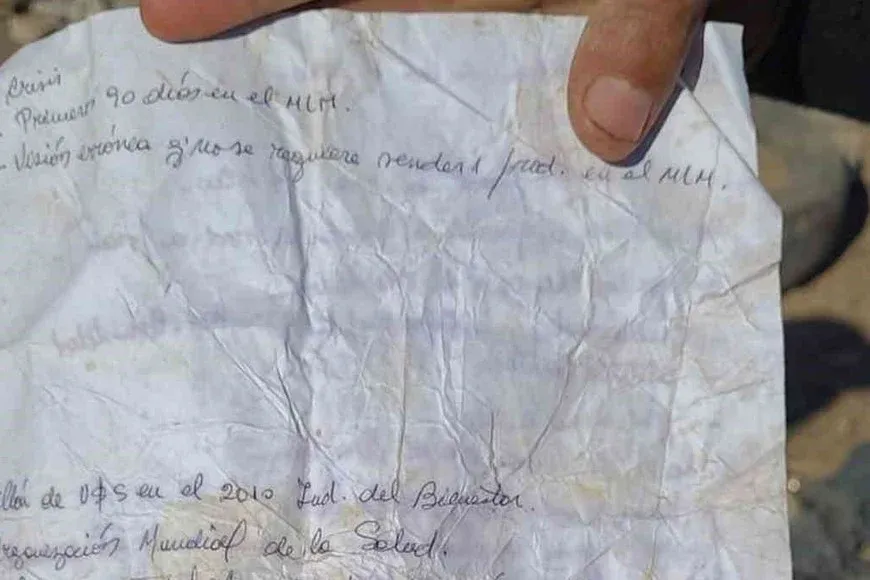 Crisis
- Primeros 90 días en el MLM.
- Visión errónea q' No se requiere vender prod. en el MLM.
de U$S en el 2010 Ind. del Bienestar.
Organización Mundial de la Salud.